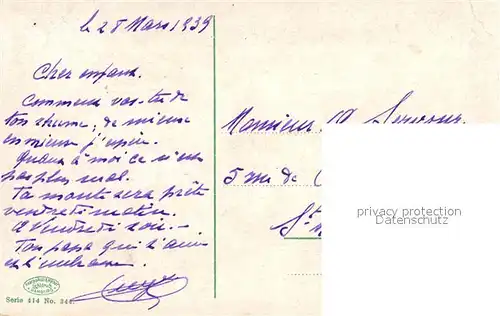 le 28 Mars 1939
Cher enfant.
Comment vas-tu de
ton rhume, de mieux
en mieux j'espère.
Quant à moi ce n'est
pas plus mal.
Ta montre sera prête
vendredi matin.
A Vendredi soir. —
Ton papa qui t'aime
et t'embrasse.
Monsieur
5 rue de
St
privacy protection
Datenschutz
Serie 414 No. 344.